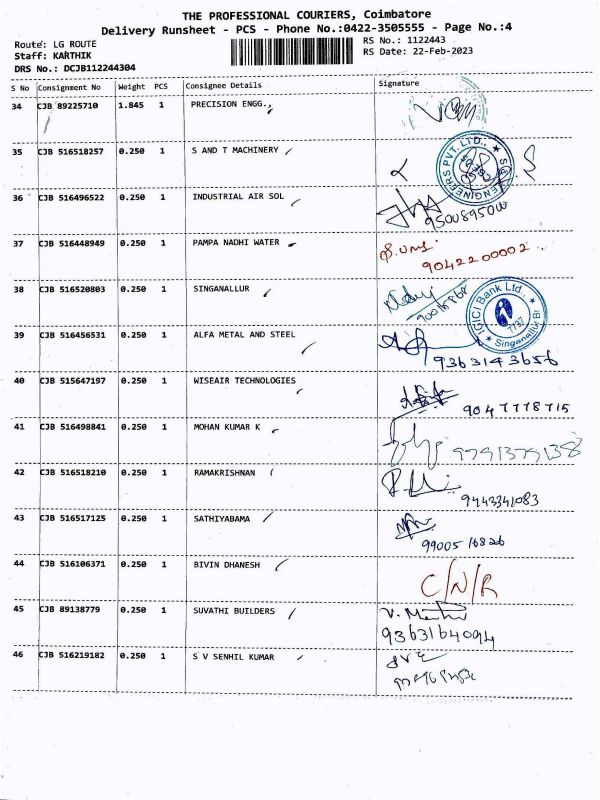 THE PROFESSIONAL COURIERS, Coimbatore
Delivery Runsheet - PCS - Phone No.:0422-3505555 - Page No.:4
Route: LG ROUTE RS No.: 1122443
Staff: KARTHIK RS Date: 22-Feb-2023
DRS No.: DCJB112244304
S No Consignment No Weight PCS Consignee Details Signature
34 CJB 89225710 1.845 1 PRECISION ENGG.,
35 CJB 516518257 0.250 1 S AND T MACHINERY
ENGINEERS PVT. LTD.,
36 CJB 516496522 0.250 1 INDUSTRIAL AIR SOL
37 CJB 516448949 0.250 1 PAMPA NADHI WATER
9042200002
38 CJB 516520803 0.250 1 SINGANALLUR
ICICI Bank Ltd.
7737
Singanallur Br
39 CJB 516456531 0.250 1 ALFA METAL AND STEEL
9363143656
40 CJB 515647197 0.250 1 WISEAIR TECHNOLOGIES
9047778715
41 CJB 516498841 0.250 1 MOHAN KUMAR K
9791379138
42 CJB 516518210 0.250 1 RAMAKRISHNAN
9443341083
43 CJB 516517125 0.250 1 SATHIYABAMA
9900516826
44 CJB 516106371 0.250 1 BIVIN DHANESH
C/N/R
45 CJB 89138779 0.250 1 SUVATHI BUILDERS
9363164094
46 CJB 516219182 0.250 1 S V SENHIL KUMAR